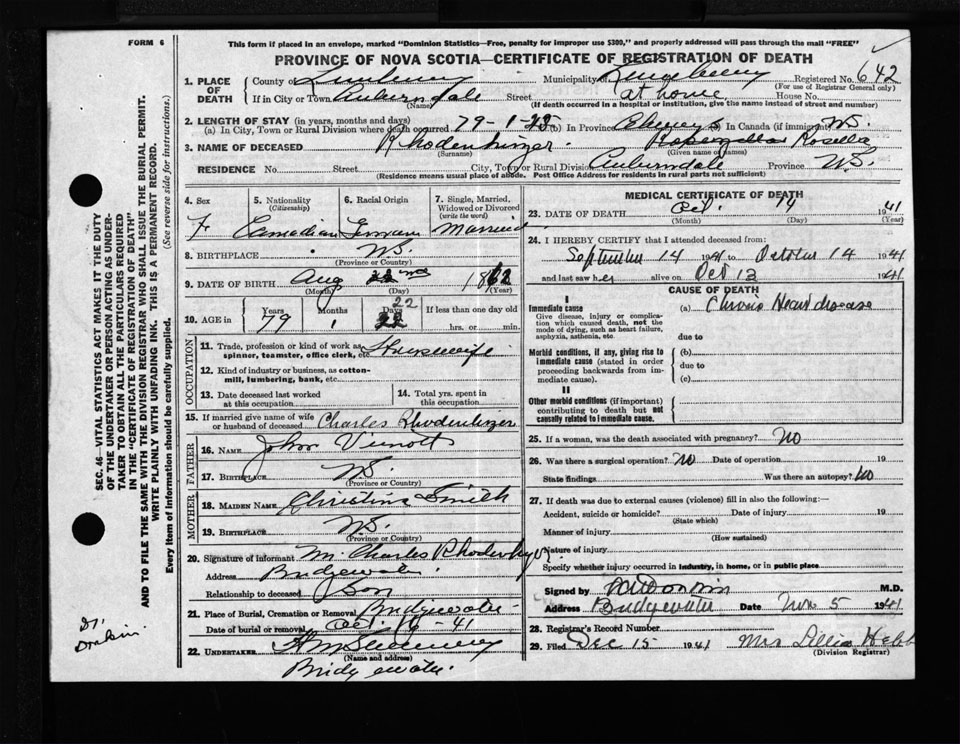 FORM 6
This form if placed in an envelope, marked "Dominion Statistics—Free, penalty for improper use $300," and properly addressed will pass through the mail "FREE"
PROVINCE OF NOVA SCOTIA—CERTIFICATE OF REGISTRATION OF DEATH
1. PLACE OF DEATH County of Lunenburg Municipality of Registered No. 642
(For use of Registrar General only)
If in City or Town Auburndale Street at home House No.
(Name) (If death occurred in a hospital or institution, give the name instead of street and number)
2. LENGTH OF STAY (in years, months and days)
(a) In City, Town or Rural Division where death occurred 79-1-22 (b) In Province Always (c) In Canada (if immigrant) N.S.
3. NAME OF DECEASED Rhodenhizer
(Surname) (Given name or names)
RESIDENCE No. Street City, Town or Rural Division Auburndale Province N.S.
(Residence means usual place of abode. Post Office Address for residents in rural parts not sufficient)
4. Sex F
5. Nationality (Citizenship) Canadian
6. Racial Origin German
7. Single, Married, Widowed or Divorced (write the word) Married
8. BIRTHPLACE N.S.
(Province or Country)
9. DATE OF BIRTH Aug 22nd 1862
(Month) (Day) (Year)
10. AGE in Years 79 Months 1 Days 22 22 If less than one day old
hrs. or min.
OCCUPATION
11. Trade, profession or kind of work as spinner, teamster, office clerk, etc. Housewife
12. Kind of industry or business, as cotton-mill, lumbering, bank, etc.
13. Date deceased last worked at this occupation
14. Total yrs. spent in this occupation
15. If married give name of wife or husband of deceased Charles Rhodenhizer
FATHER
16. NAME John
17. BIRTHPLACE N.S.
(Province or Country)
MOTHER
18. MAIDEN NAME Christina Smith
19. BIRTHPLACE N.S.
(Province or Country)
20. Signature of informant M. Charles Rhodenhizer
Address Bridgewater
Relationship to deceased Son
21. Place of Burial, Cremation or Removal Bridgewater
Date of burial or removal Oct. 16 - 41
22. UNDERTAKER
(Name and address)
Bridgewater.
MEDICAL CERTIFICATE OF DEATH
23. DATE OF DEATH Oct. 14 1941
(Month) (Day) (Year)
24. I HEREBY CERTIFY that I attended deceased from:
September 14 1941 to October 14 1941
and last saw her alive on Oct 13 1941
CAUSE OF DEATH
I
Immediate cause (a) Chronic Heart disease
Give disease, injury or complication which caused death, not the mode of dying, such as heart failure, asphyxia, asthenia, etc.
due to
Morbid conditions, if any, giving rise to immediate cause (stated in order proceeding backwards from immediate cause).
(b)
due to
(c)
II
Other morbid conditions (if important) contributing to death but not causally related to immediate cause.
25. If a woman, was the death associated with pregnancy? No
26. Was there a surgical operation? No Date of operation 19
State findings Was there an autopsy? No
27. If death was due to external causes (violence) fill in also the following:—
Accident, suicide or homicide? Date of injury 19
(State which)
Manner of injury
(How sustained)
Nature of injury
Specify whether injury occurred in industry, in home, or in public place
Signed by M.D.
Address Bridgewater Date Nov 5 1941
28. Registrar's Record Number
29. Filed Dec 15 1941 Mrs Hebb
(Division Registrar)
SEC. 46—VITAL STATISTICS ACT MAKES IT THE DUTY
OF THE UNDERTAKER OR PERSON ACTING AS UNDER-
TAKER TO OBTAIN ALL THE PARTICULARS REQUIRED
IN THE "CERTIFICATE OF REGISTRATION OF DEATH"
AND TO FILE THE SAME WITH THE DIVISION REGISTRAR WHO SHALL ISSUE THE BURIAL PERMIT.
WRITE PLAINLY WITH UNFADING INK. THIS IS A PERMANENT RECORD.
Every item of information should be carefully supplied. (See reverse side for instructions.)